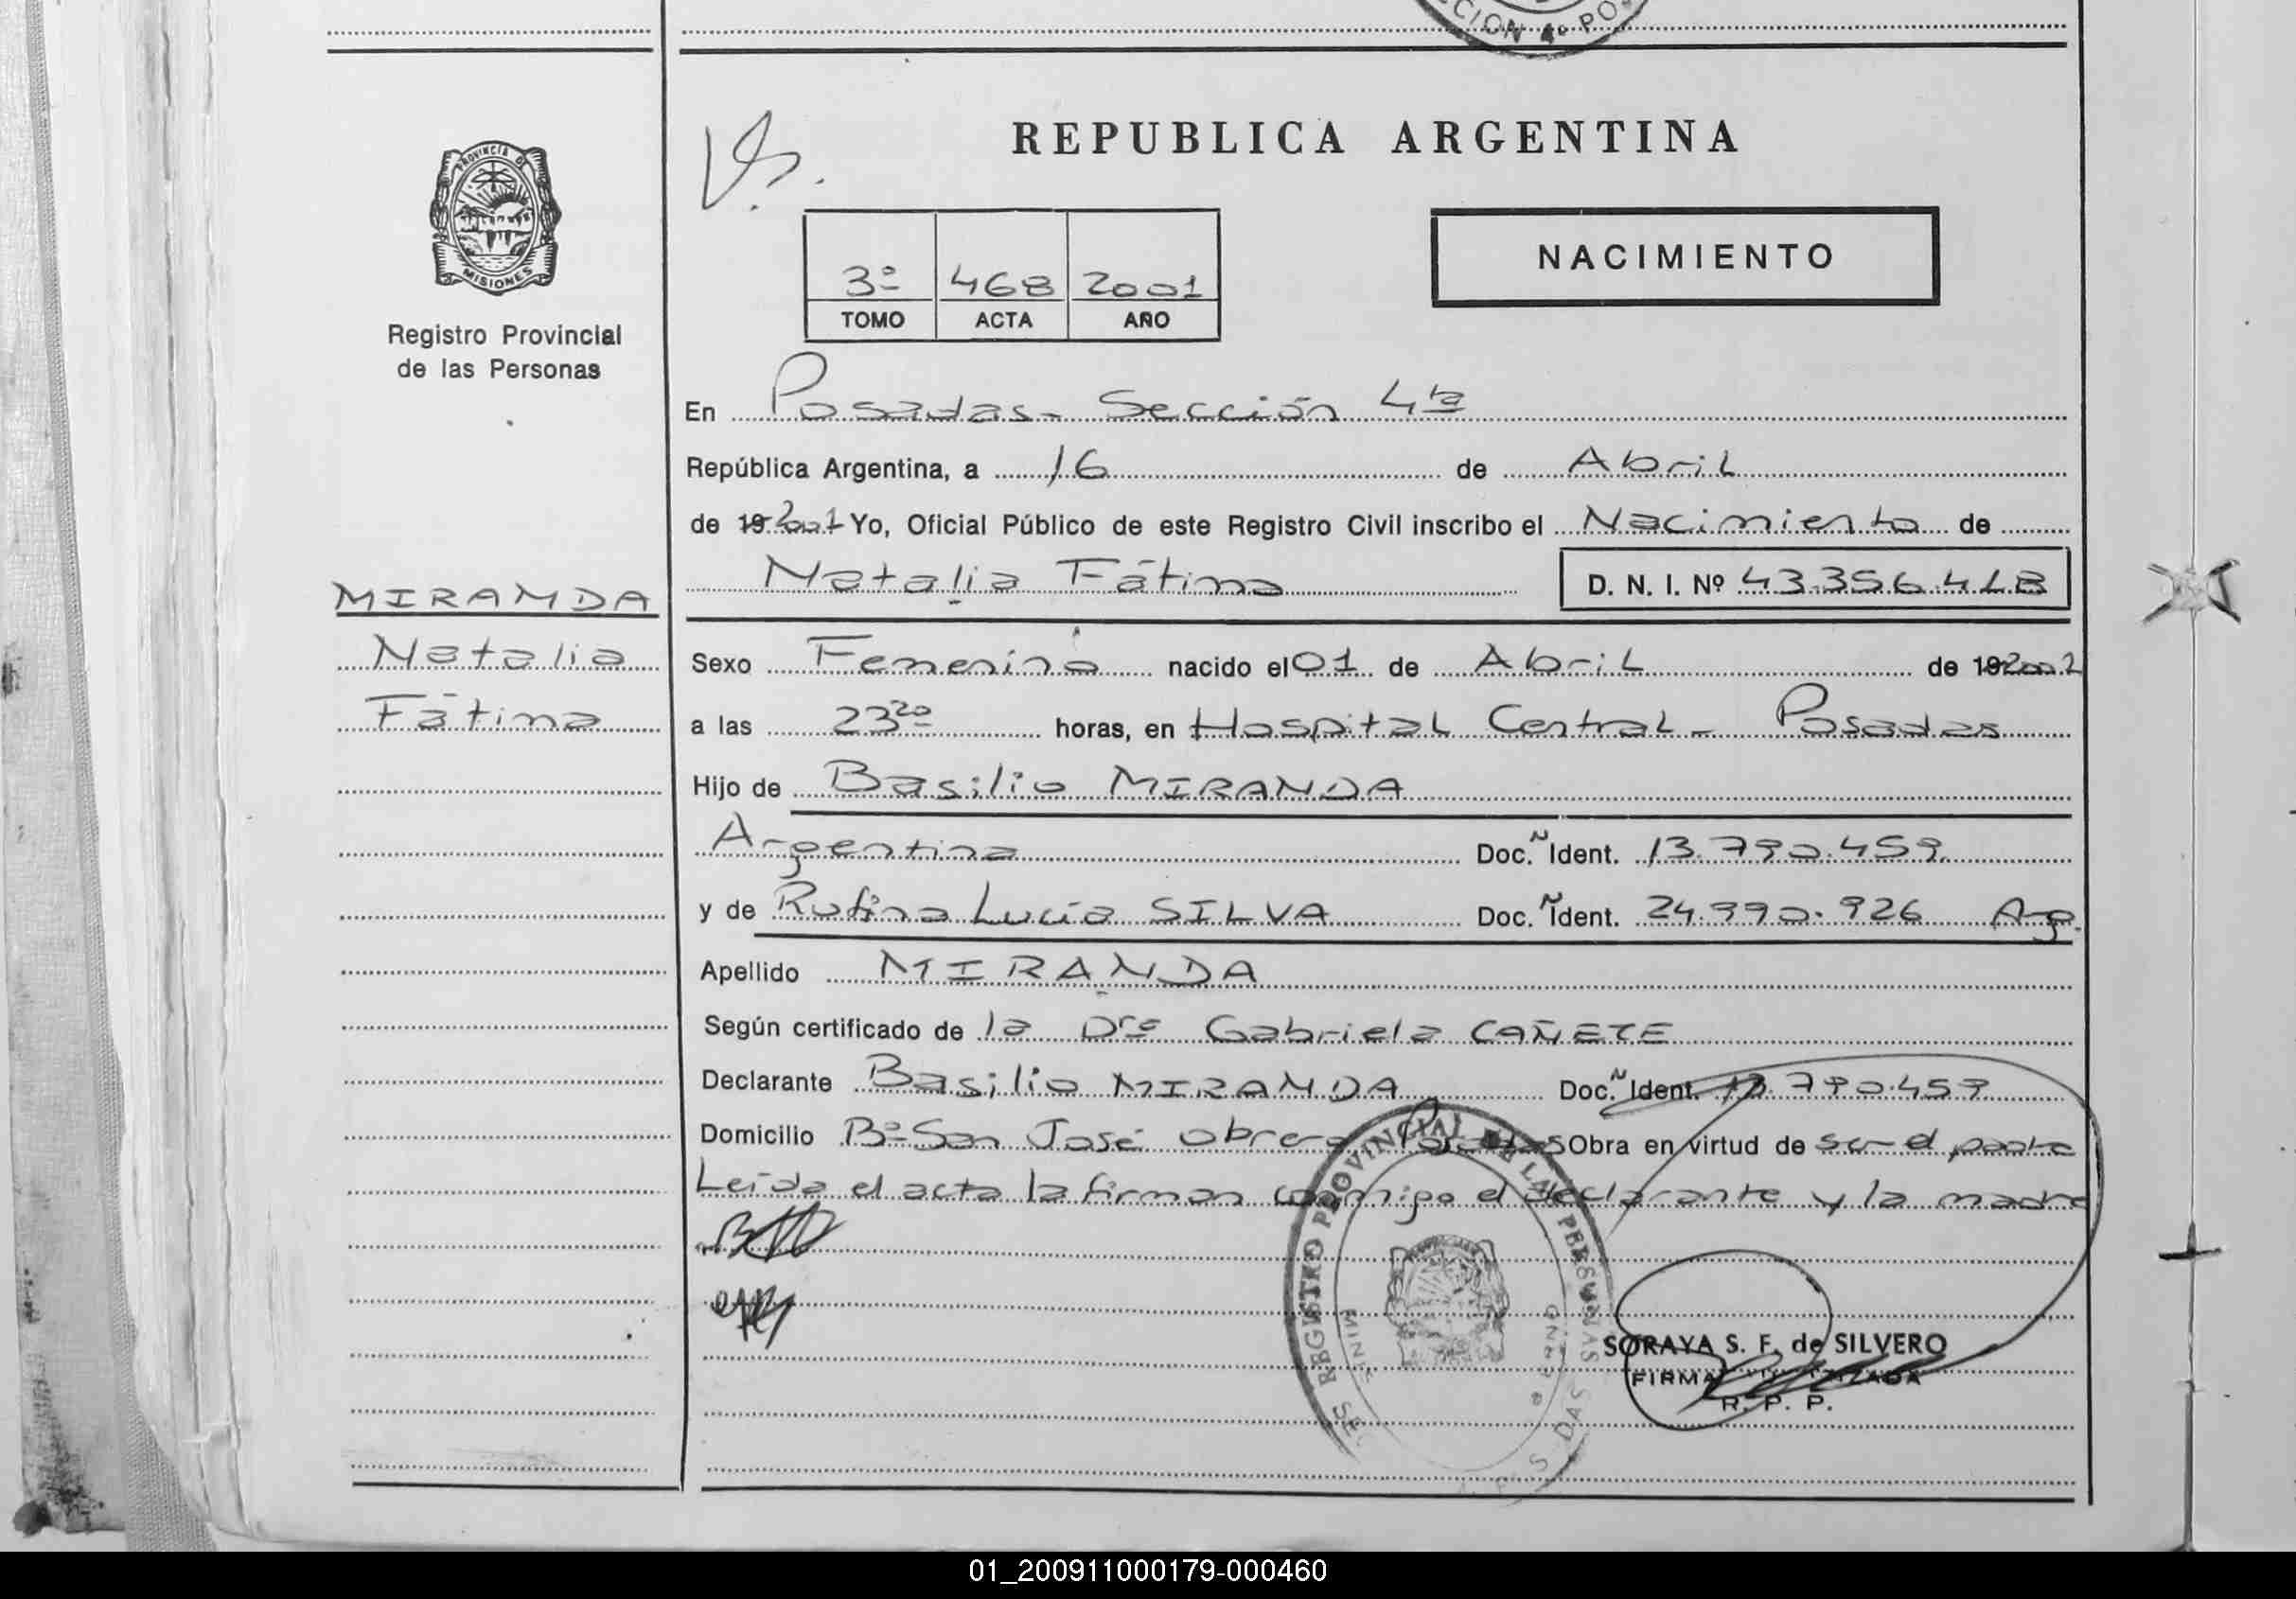 CCION 4º PO
REPUBLICA ARGENTINA
PROVINCIA DE
MISIONES
Registro Provincial
de las Personas
3º 468 2001
TOMO ACTA AÑO
NACIMIENTO
En Posadas - Sección 4ta
República Argentina, a 16 de Abril
de 19 2001 Yo, Oficial Público de este Registro Civil inscribo el Nacimiento de
Natalia Fátima D. N. I. Nº 43.356.418
MIRANDA
Natalia
Fátima
Sexo Femenino nacido el 01 de Abril de 19 2001
a las 23 20 horas, en Hospital Central - Posadas
Hijo de Basilio MIRANDA
Argentino Doc. Ñ Ident. 13.790.459
y de Rufina Lucía SILVA Doc. Ñ Ident. 24.990.926 Arg.
Apellido MIRANDA
Según certificado de la Dra Gabriela CAÑETE
Declarante Basilio MIRANDA Doc. Ñ Ident. 13.790.459
Domicilio Bº San José Obrero Posadas Obra en virtud de ser el padre
Leída el acta la firman conmigo el declarante y la madre
REGISTRO PROVINCIAL DE LAS PERSONAS
SORAYA S. F. de SILVERO
FIRMA
R. P. P.
01_200911000179-000460